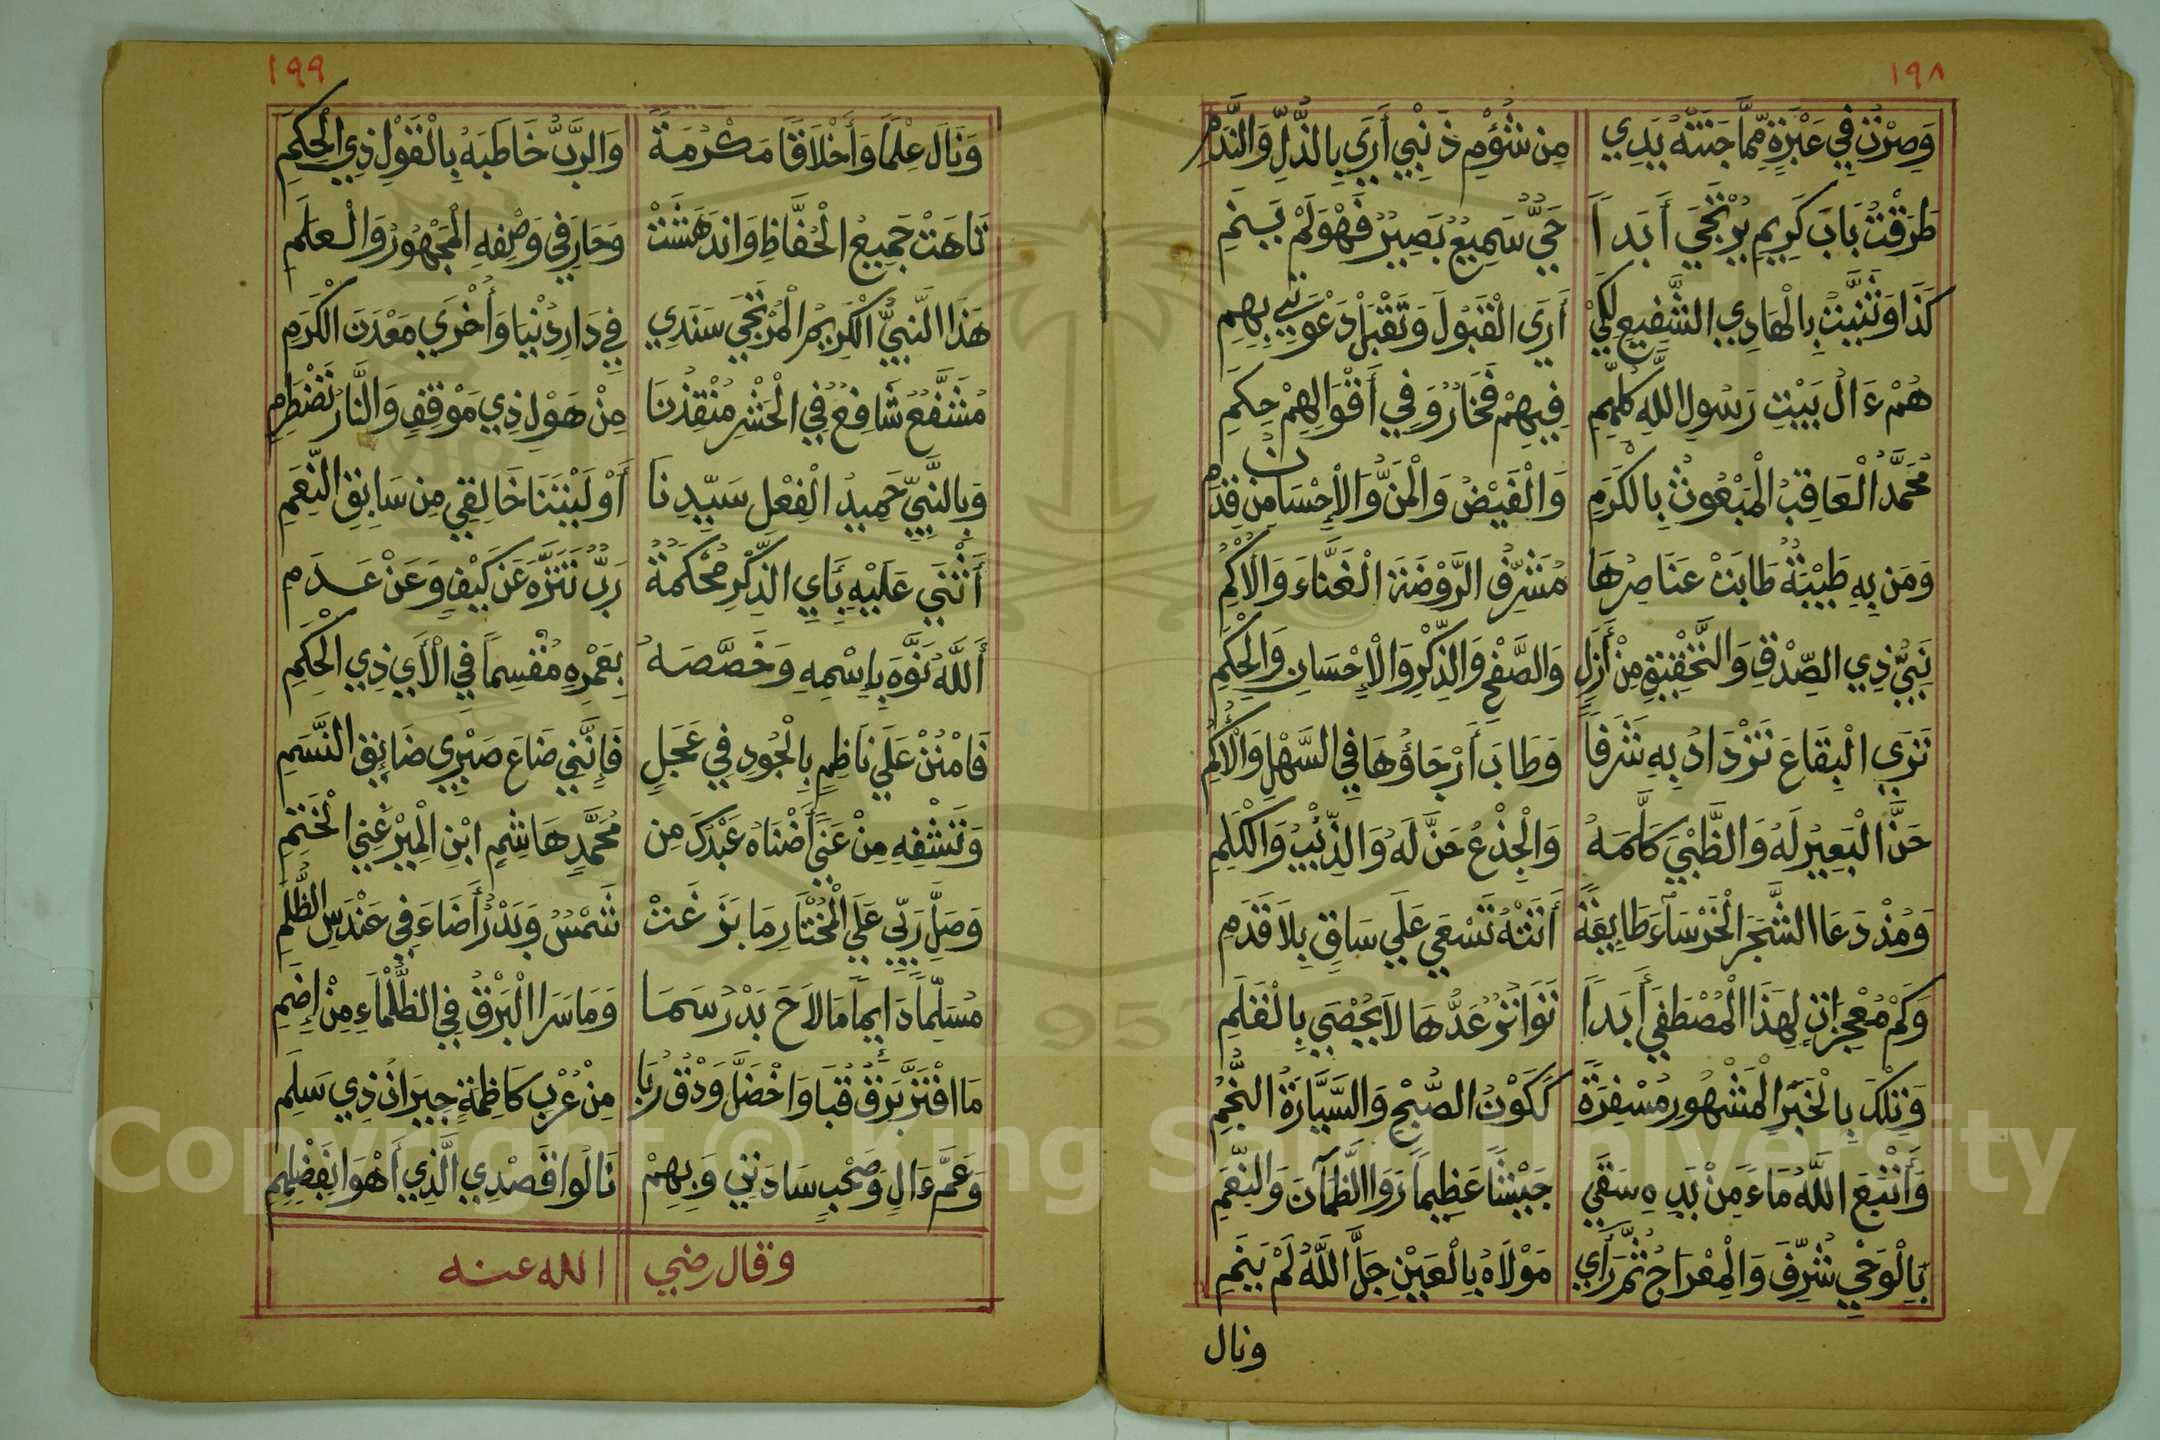 ١٩٨
وَصِرْتُ فِي عَبْرَةٍ مِّمَّا جَنَتْهُ يَدِي مِن شُؤْمِ ذَنْبِي أَرَي بِالذُّلِّ وَالنَّدَمِ
طَرَقْتُ بَابَ كَرِيمٍ يُرْتَجَي أَبَداً حَيٌّ سَمِيعٌ بَصِيرٌ فَهْوَ لَمْ يَنَمِ
كَذَا وَثَنَّيْتُ بِالْهَادِي الشَّفِيعِ لِكَيْ أَرَى الْقَبُولَ وَتُقْبَلْ دَعْوَتِي بِهِمِ
هُمْ ءَالُ بَيْتِ رَسُولِ اللَّهِ كُلِّهِمِ فِيهِمْ فَخَارٌ وَفِي أَقْوَالِهِمْ حِكَمِ
مُحَمَّدُ الْعَاقِبُ الْمَبْعُوثُ بِالْكَرَمِ وَالْفَيْضُ وَالْمَنُّ وَالْإِحْسَان مِن قِدَمِ
وَمَن بِهِ طَيْبَةٌ طَابَتْ عَنَاصِرُهَا مُشَرِّفُ الرَّوْضَةِ الْغَنَّاءَ وَالْأُكُمِ
نَبِيُّ ذِي الصِّدْقِ وَالتَّحْقِيقِ مِنْ أَزَلٍ وَالصَّفْحِ وَالذِّكْرِ وَالْإِحْسَانِ وَالْحِكَمِ
تَرَي الْبِقَاعَ تَزْدَادُ بِهِ شَرَفاً وَطَابَ أَرْجَاؤُهَا فِي السَّهْلِ وَالْأُكُمِ
حَنَّ الْبَعِيرُ لَهُ وَالظَّبْيَ كَلَّمَهُ وَالْجِذْعُ حَنَّ لَهُ وَالذِّئْبُ وَالْكَلِمِ
وَمُذْ دَعَا الشَّجَرَ الْخَرْسَآءَ طَائِعَةً أَتَتْهُ تَسْعَي عَلَي سَاقٍ بِلَا قَدَمِ
وَكَمْ مُعْجِزَاتٍ لِهَذَا الْمُصْطَفَي أَبَداً تَوَاتُرٌ عَدُّهَا لَا يُحْصَي بِالْقَلَمِ
وَتِلْكَ بِالْخَبَرِ الْمَشْهُورِ مُسْفِرَةٌ كَكَوْنِ الصُّبْحِ وَالسَّيَّارَةُ النُّجُمِ
وَأَنْبَعَ اللَّهُ مَاءً مِنْ يَدِهِ سَقَي جَيْشاً عَظِيماً رَوَا الظَّمْآنَ وَالنِّعَمِ
بِالْوَحْيِ شُرِّفَ وَالْمِعْرَاجُ ثُمَّ رَأَي مَوْلَاهُ بِالْعَيْنِ جَلَّ اللَّهُ لَمْ يَنَمِ
ونال
١٩٩
وَنَالَ عِلْماً وَأَخْلَاقاً مَكْرُمَةً وَالرَّبُّ خَاطَبَهُ بِالْقَوْلِ ذِي الْحِكَمِ
تَاهَتْ جَمِيعُ الْحُفَّاظِ وَانْدَهَشَتْ وَحَارَ فِي وَصْفِهِ الْمَجْهُورُ وَالْعَلَمِ
هَذَا النَّبِيُّ الْكَرِيمُ الْمُرْتَجَي سَنَدِي فِي دَارِ دُنْيَا وَأُخْرَي مَعْدَنَ الْكَرَمِ
مُشَفَّعٌ شَافِعٌ فِي الْحَشْرِ مُنْقِذُنَا مِنْ هَوْلِ ذِي مَوْقِفٍ وَالنَّارُ تَضْطَرِمِ
وَبِالنَّبِيِّ حَمِيدُ الْفِعْلِ سَيِّدِنَا أَوْلَيْتَنَا خَالِقِي مِن سَابِقِ النِّعَمِ
أَثْنَي عَلَيْهِ بَأَيِ الذِّكْرِ مُحْكَمَةٌ رَبٌّ تَنَزَّهَ عَن كَيْفٍ وَعَنْ عَدَمِ
أَللَّهُ نَوَّهَ بِإِسْمِهِ وَخَصَّصَهُ بِعَمْرِهِ مُقْسِماً فِي الْأَيِ ذِي الْحِكَمِ
فَامْنُنْ عَلَي نَاظِمٍ بِالْجُودِ فِي عَجَلٍ فَإِنَّنِي ضَاعَ صَبْرِي ضَائِقِ النَّسَمِ
وَتَشْفِهِ مِنْ عَنَي أَضْنَاهُ عَبْدُكَ مِن مُحَمَّدٍ هَاشِمٍ ابْنِ الْمِيرْغَنِي الْخَتْمِ
وَصَلِّ رَبِّي عَلَي الْمُخْتَارِ مَا بَزَغَتْ شَمْسٌ وَبَدْرٌ أَضَاءَ فِي عَنْدَسِ الظُّلَمِ
مُسَلِّماً دَايِماً مَا لَاحَ بَدْرُ سَمَا وَمَا سَرَا الْبَرْقُ فِي الظَّلْمَاءِ مِنْ إِضَمِ
مَا افْتَرَّ بَرْقُ قُبَا وَاخْضَلَّ وَدْقُ رُبَا مِنْ عُرْبِ كَاظِمَةٍ جِيرَانُ ذِي سَلَمِ
وَعَمَّ ءَالِ وَصَحْبِ سَادَتِي وَبِهِمْ نَالُوا قَصْدِي الَّذِي أَهْوَا بِفَضْلِهِمِ
وقال رضي الله عنه
Copyright © King Saud University
1957